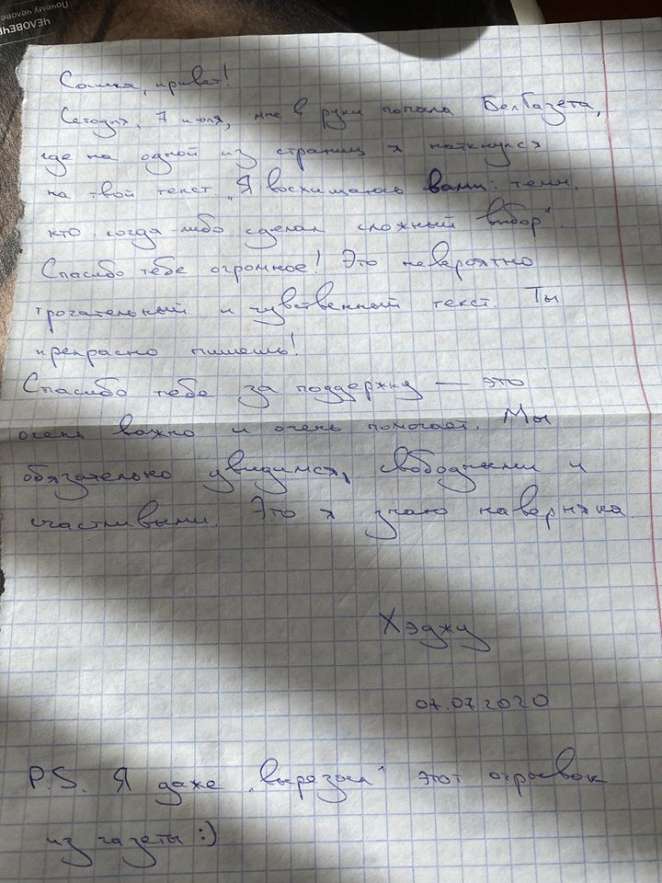 ЧЕЛОВЕЧЕ
Почему челове
привет!
Сегодня, 7 июля, мне в руки попала БелГазета,
где на одной из страниц я наткнулся
на твой текст „Я восхищаюсь вами: теми,
кто когда либо сделал сложный выбор“.
Спасибо тебе огромное! Это невероятно
трогательный и чувственный текст. Ты
прекрасно пишешь!
Спасибо тебе за поддержку — это
очень важно и очень помогает. Мы
обязательно увидимся, свободными и
счастливыми. Это я знаю наверняка.
07.07.2020
P.S. Я даже „вырезал“ этот отрывок
из газеты :)